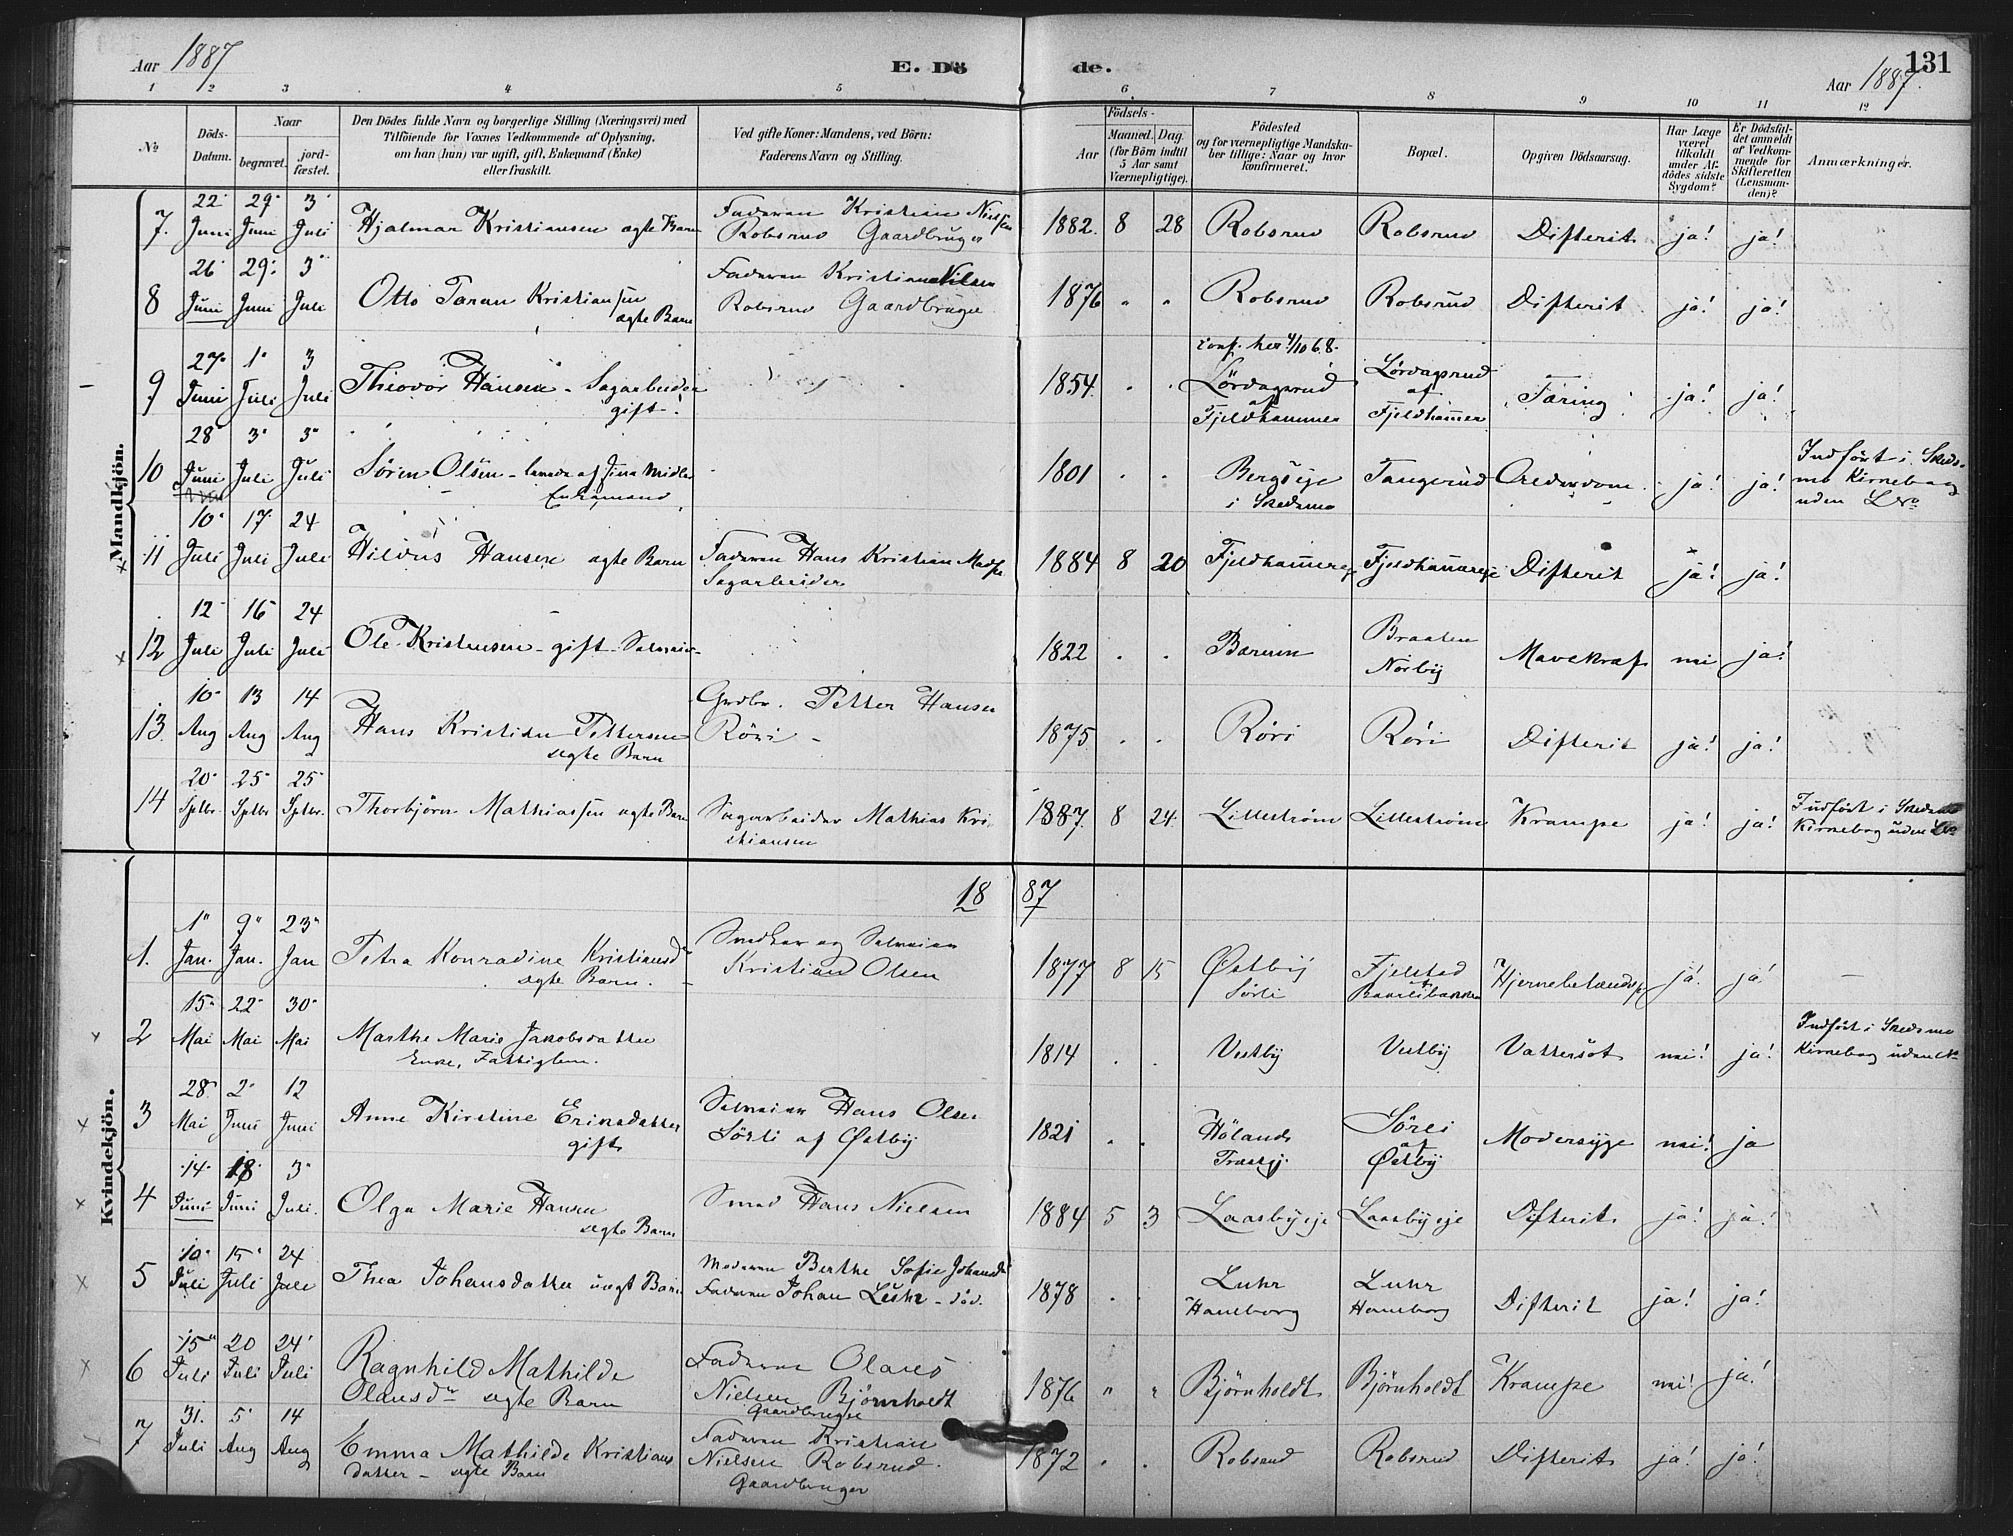 Aar 1887
E. Dö de.
131
Aar 1887.
1 2 3 4 5 6 7 8 9 10 11 12
No
Döds-
Datum.
Naar
begravet.
jord-
fæstet.
Den Dödes fulde Navn og borgerlige Stilling (Næringsvei) med
Tilföiende for Voxnes Vedkommende af Oplysning,
om han (hun) var ugift, gift, Enkemand (Enke)
eller fraskilt.
Ved gifte Koner: Mandens, ved Börn:
Faderens Navn og Stilling.
Födsels-
Aar
Maaned. Dag.
(for Börn indtil
5 Aar samt
Værnepligtige).
Födested
og for værnepligtige Mandska-
ber tillige: Naar og hvor
konfirmeret.
Bopæl.
Opgiven Dödsaarsag.
Har Læge
været
tilkaldt
under Af-
dödes sidste
Sygdom?
Er Dödsfal-
det anmeldt
af Vedkom-
mende for
Skifteretten
(Lensman-
den)?
Anmærkninger.
Mandkjön.
22 29 3
7. Juni Juni Juli Hjalmar Kristiansen ægte Barn Faderen Kristian Nielsen
Robsrud Gaardbruger 1882. 8 28 Robsrud Robsrud Difterit ja! ja!
26 29 3
8 Juni Juni Juli Otto Taran Kristiansen
ægte Barn
Faderen Kristian Nilsen
Robsrud Gaardbruger 1876 " " Robsrud Robsrud Difterit ja! ja!
27 1 3
9 Juni Juli Juli Theodor Hansen - Sagarbeider
gift.
1854. Conf. her 4/10 68.
Lørdagsrud
af
Fjeldhammer
Lørdagsrud
af
Fjeldhammer
Tæring ja! ja!
28 3 3
10 Juni Juli Juli Søren Olsen - levede af sine Midler
Enkemand
1801 Bergseje
i Skedsmo
Tangerud Alderdom ja! ja!
Indført i Skeds-
mo Kirkebog
uden No
10 17 24
11 Juli Juli Juli Hildus Hansen ægte Barn Faderen Hans Kristian Mads.
Sagarbeider
1884 8 20 Fjeldhammereje Fjeldhammereje Difterit ja! ja!
12 16 24
12 Juli Juli Juli Ole Kristensen - gift Selveier
1822 Bærum Braaten
Nordby
Mavekræft nei ja!
10 13 14
13. Aug Aug Aug Hans Kristian Pettersen
ægte Barn
Grdbr. Petter Hansen
Röri - 1875 Röri Röri Difterit ja! ja!
20 25 25
14 Sptbr. Sptbr Sptbr. Thorbjörn Mathiassen ægte Barn Sagarbeider Mathias Kri-
stiansen
1887. 8 24. Lillestrøm Lillestrøm Krampe ja! ja! Indført i Skedsmo
Kirkebog uden No
18 87
Kvindekjön.
1 9 23
1. Jan. Jan. Jan Petra Konradine Kristiansd
ægte Barn.
Snedker og Selveier
Kristian Olsen
1877 8 15 Østby
Sørli
Fjelstad
Hjernebetændels ja! ja!
15 22 30
2 Mai Mai Mai Marthe Marie Jakobsdatter
Enke, Fattiglem.
1814 Vestby Vestby Vattersot nei! ja! Indført i Skedsmo
Kirkebog uden No
28 2 12
3 Mai Juni Juni Anne Kirstine Eriksdatter
gift
Selveier Hans Olsen
Sörli af Østby
1821 Hølands
Præstgj.
Sörli
af
Østby
Modersyge nei! ja
14 18 3
4 Juni Juni Juli. Olga Marie Hansen
ægte Barn
Smed Hans Nielsen
1884 5 3 Laasbyeje Laasbyeje Difterit ja! ja!
10 15 24
5 Juli Juli Juli Thea Johansdatter uægt Barn
Moderen Berthe Sofie Johansd
Faderen Johan Luhr - død.
1878 Luhr
Haneborg
Luhr
Haneborg
Difterit ja! ja!
15 20 24
6 Juli Juli Juli Ragnhild Mathilde
Olausdr ægte Barn
Faderen Olaves
Nielsen Bjørnholdt
Gaardbruger
1876 " " Bjørnholdt Bjørnholdt Krampe nei! ja!
31. 5 14
7 Juli Aug Aug Emma Mathilde Kristians
datter - ægte Barn
Faderen Kristian
Nielsen Robsrud.
Gaardbruger
1872 Robsrud Robsrud Difterit ja! ja!